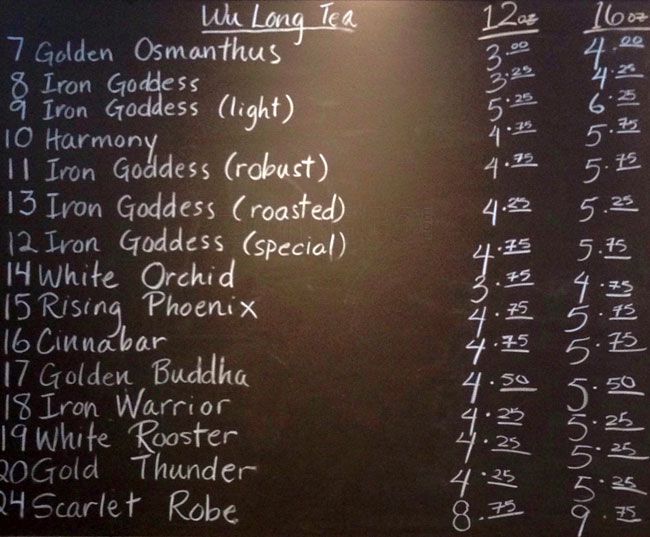 Wu Long Tea 12oz 16oz
7 Golden Osmanthus 3.00 4.00
8 Iron Goddess 3.25 4.25
9 Iron Goddess (light) 5.25 6.25
10 Harmony 4.75 5.75
11 Iron Goddess (robust) 4.75 5.75
13 Iron Goddess (roasted) 4.25 5.25
12 Iron Goddess (special) 4.75 5.75
14 White Orchid 3.75 4.75
15 Rising Phoenix 4.75 5.75
16 Cinnabar 4.75 5.75
17 Golden Buddha 4.50 5.50
18 Iron Warrior 4.25 5.25
19 White Rooster 4.25 5.25
20 Gold Thunder 4.25 5.25
24 Scarlet Robe 8.75 9.75